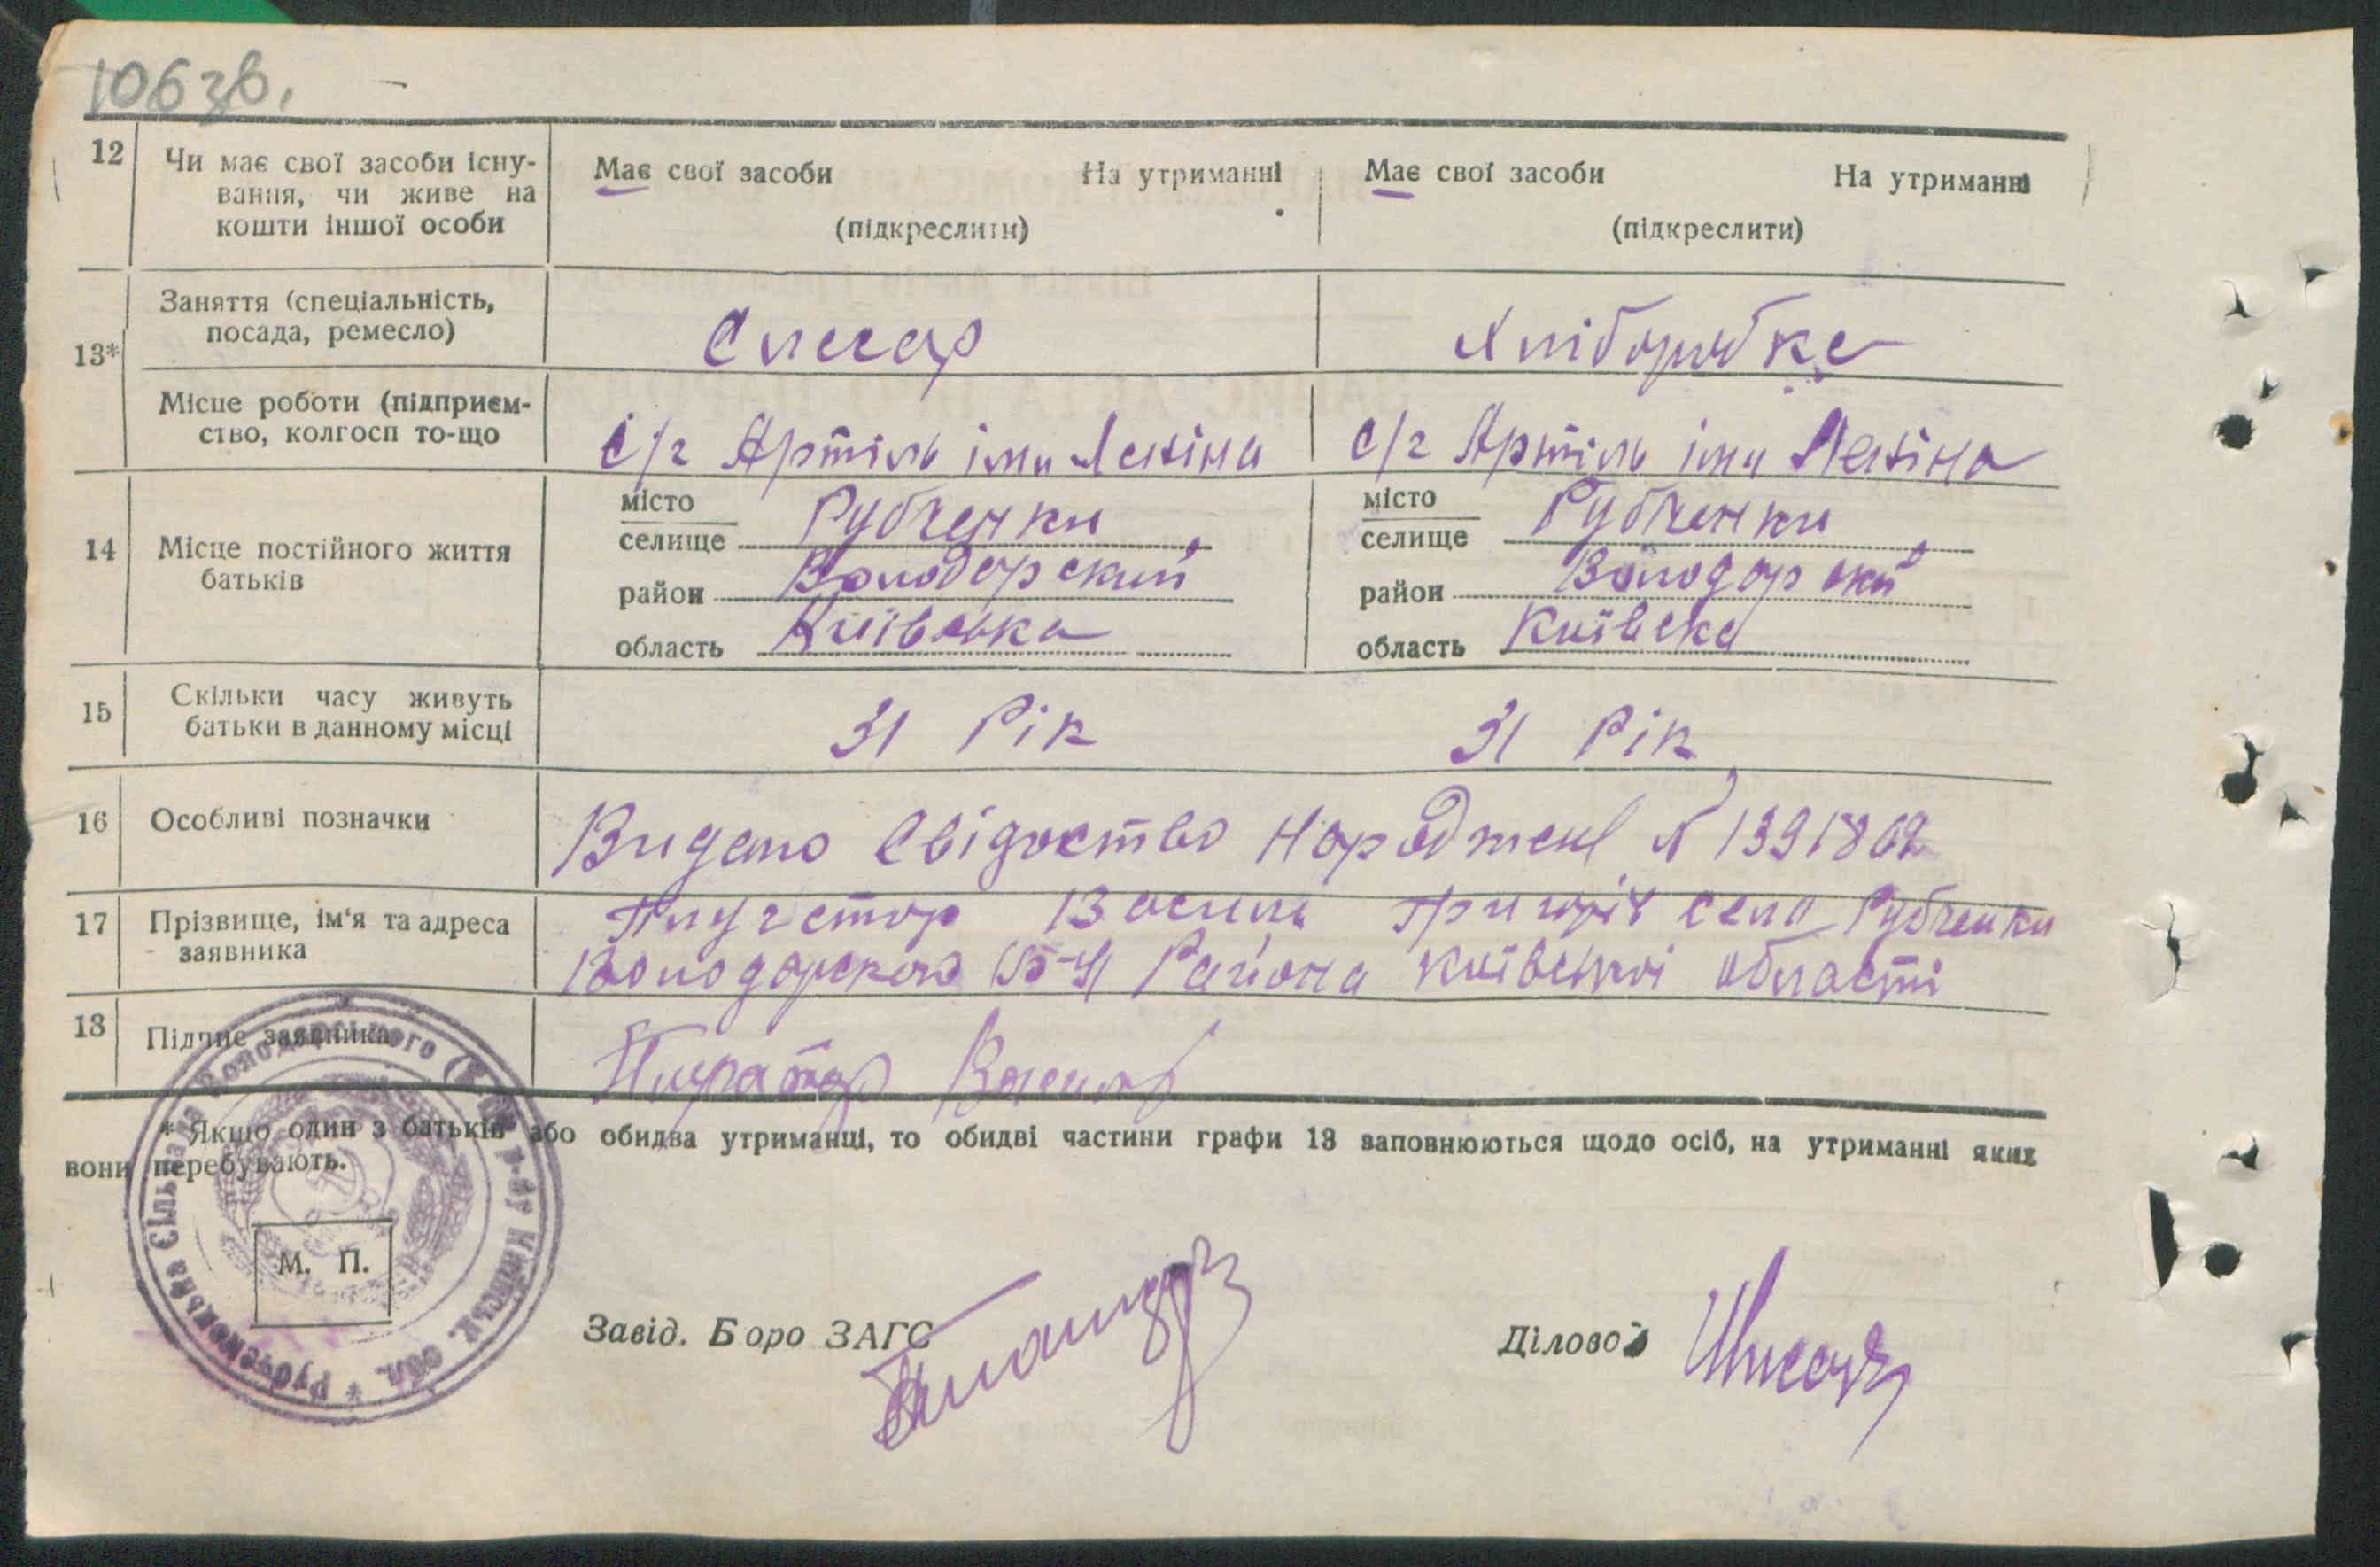 106 зв.
12 Чи має свої засоби існу-
вання, чи живе на
кошти іншої особи
Має свої засоби На утриманні
(підкреслити)
Має свої засоби На утриманні
(підкреслити)
13*
Заняття (спеціальність,
посада, ремесло)
Слесар
Хлібороб­ка
Місце роботи (підприєм-
ство, колгосп то-що
С/г Артіль іми Леніна
С/г Артіль іми Леніна
14 Місце постійного життя
батьків
місто
селище Рубченки
район Володарский
область Київська
місто
селище Рубченки
район Володарский
область Київска
15 Скільки часу живуть
батьки в данному місці
31 Рік
31 Рік
16 Особливі позначки
Видано Свідоство Народжені № 1391869
17 Прізвище, ім'я та адреса
заявника
Василь село Рубченки
Володарского Района київської області
18 Підпис заявника
Василь
* Якщо один з батьків або обидва утриманці, то обидві частини графи 13 заповнюються щодо осіб, на утриманні яких
вони перебувають.
М. П.
Рубченківська Сільрада Володарського р-ну Київськ. обл. *
Завід. Боро ЗАГС
Діловод